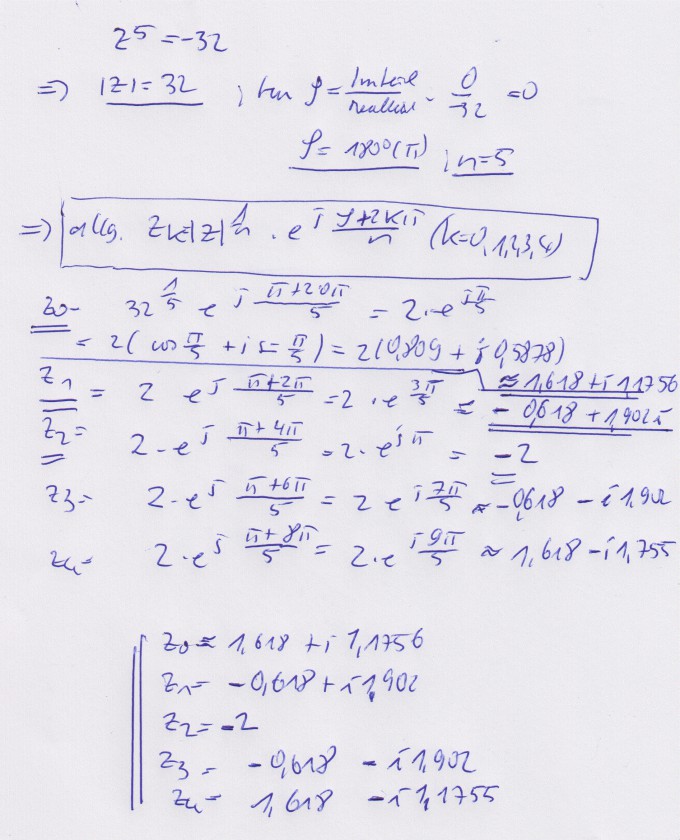 z⁵ = -32
=> |z| = 32 ; tan φ = Imteil/Realteil = 0/-32 = 0
φ = 180° (π) ; n=5
=> allg. zk=|z|^(1/n) · e^(i (φ+2kπ)/n) (k=0,1,2,3,4)
z0= 32^(1/5) e^(i (π+2·0π)/5) = 2·e^(iπ/5)
= 2( cos π/5 + i sin π/5) = 2(0,809 + i 0,5878)
≈ 1,618 + i 1,1756
z1 = 2 e^(i (π+2π)/5) = 2 · e^(3π/5) ≈ -0,618 + 1,902i
z2= 2·e^(i (π+4π)/5) = 2·e^(iπ) = -2
z3= 2·e^(i (π+6π)/5) = 2 e^(i 7π/5) ≈ -0,618 - i 1,902
z4= 2·e^(i (π+8π)/5) = 2·e^(i 9π/5) ≈ 1,618 - i 1,755
z0 ≈ 1,618 + i 1,1756
z1= -0,618 + i 1,902
z2= -2
z3= -0,618 - i 1,902
z4= 1,618 - i 1,1755